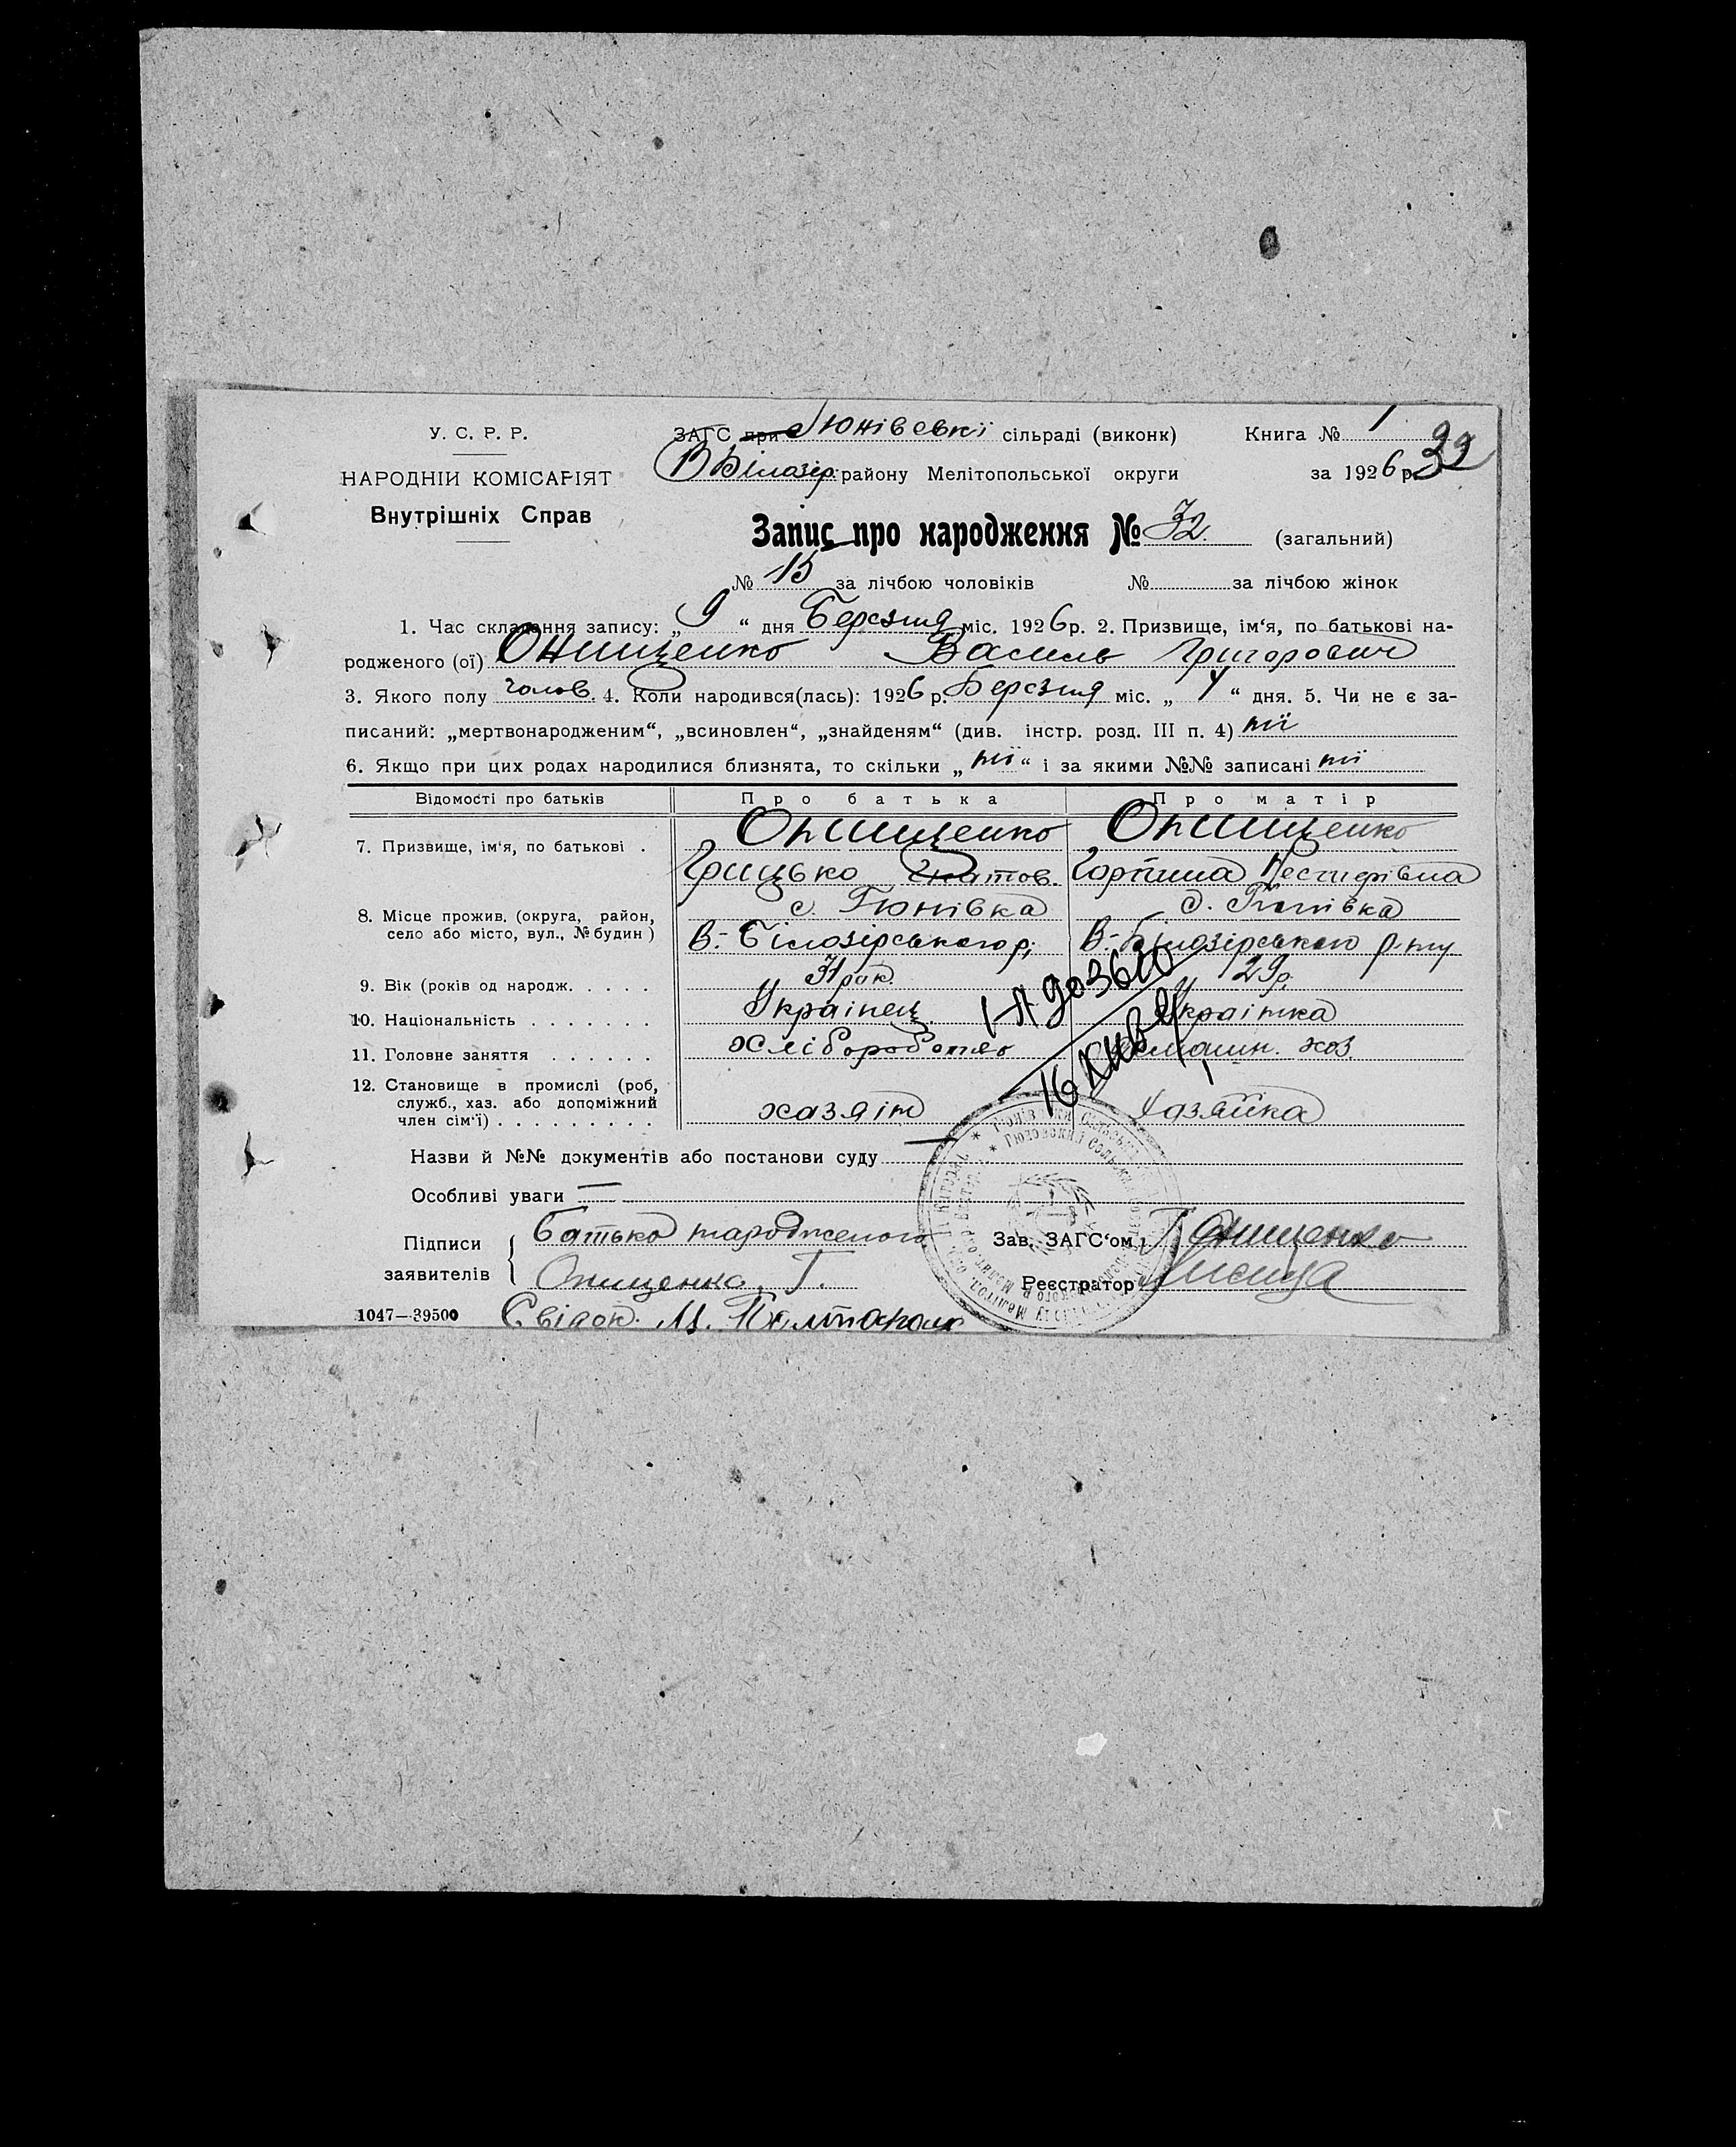 У. С. Р. Р.
НАРОДНІЙ КОМІСАРІЯТ
Внутрішніх Справ
ЗАГС при Гюнівські сільраді (виконк) Книга № 1
В Білозір. району Мелітопольської округи за 1926 р. 32
Запис про народження № 32 (загальний)
№ 15 за лічбою чоловіків № за лічбою жінок
1. Час складання запису: „9“ дня Березня міс. 1926 р. 2. Призвище, ім‘я, по батькові на-
родженого (ої) Онищенко Василь Григорович
3. Якого полу чолов. 4. Коли народився(лась): 1926 р. Березня міс. „ “ дня. 5. Чи не є за-
писаний: „мертвонародженим“, „всиновлен“, „знайденям“ (див. інстр. розд. III п. 4) ні
6. Якщо при цих родах народилися близнята, то скільки „ні“ і за якими №№ записані ні
Відомості про батьків Про батька Про матір
7. Призвище, ім‘я, по батькові . Онищенко Онищенко
Грицько Гнатов. Горпина Нестерівна
8. Місце прожив. (округа, район, с. Гюнівка с. Гюнівка
село або місто, вул., № будин) В.-Білозірського р. В.-Білозірського р-ну
9. Вік (років од народж. . . . . . рок. 29 р.
10. Національність . . . . . . . Українец Українка
11. Головне заняття . . . . . . хлібороботво домашн. хоз.
12. Становище в промислі (роб,
служб., хаз. або допоміжний
член сім‘ї) . . . . . . . . . хазяін Хазяйка
Назви й №№ документів або постанови суду —
Особливі уваги —
Підписи заявителів Батько народженого Зав. ЗАГС‘ом Онищенко
Онищенко Г. Реєстратор Лисиця
1047—39500 Свідок. М.